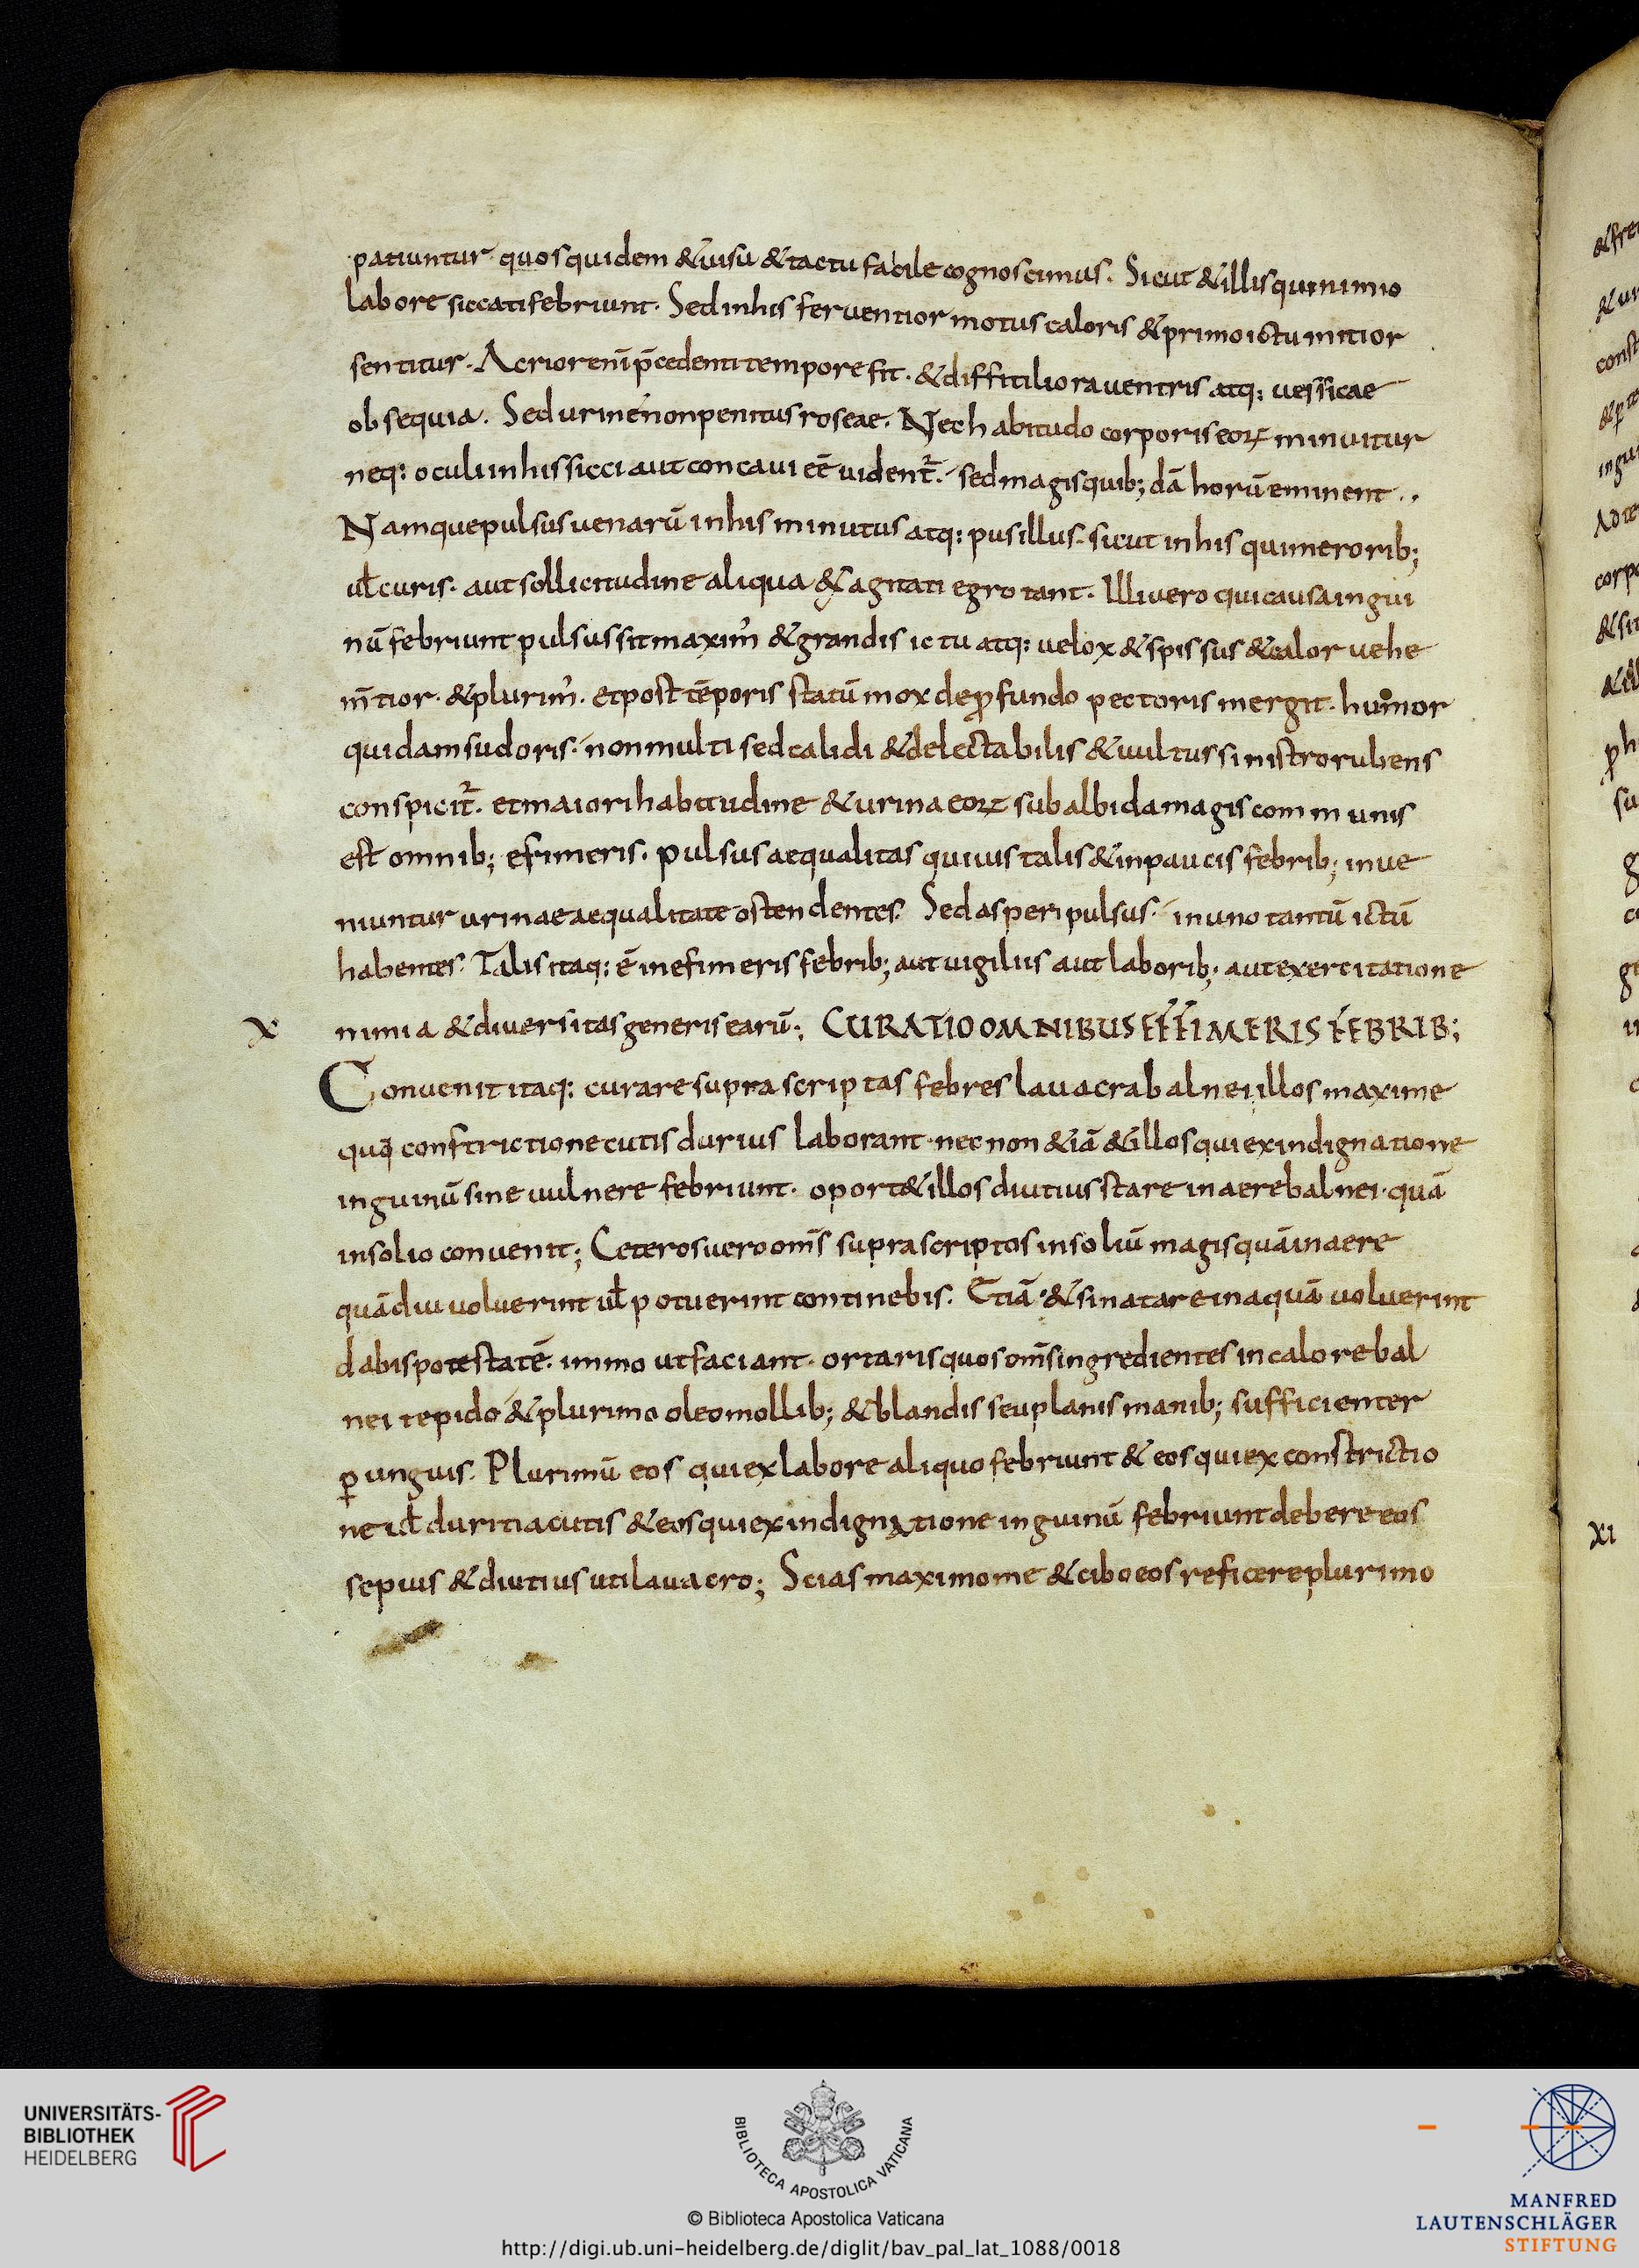 patiuntur. quos quidem & uisu & tactu facile cognoscimus. Sicut & illis qui nimio
labore siccati febriunt. Sed in his feruentior motus caloris & primo ictu mitior
sentitur. Acrior eni p̄cedenti tempore fit. & diffitiliora uentris atq: uessicae
obsequia. Sed urine non penitus roseae. Nec habitudo corporis eorꝝ minuitur
neq: oculi in his sicci aut concaui eē uidentr̄. sed magis quib;dā horū eminent..
Namque pulsus uenarū in his minutus atq: pusillus. sicut in his qui meroribus;
ul̄ curis. aut sollicitudine aliqua exagitati egrotant. Illi uero qui causa ingui
nū febriunt pulsus sit maxim̓ & grandis ictu atq: uelox & spissus & calor uehe
m̄tior. & plurim̓. et post tēporis statū mox de ꝓfundo pectoris mergit. humor
quidam sudoris. non multi sed calidi & delectabilis & uultus sinistro rubens
conspicitr̄. et maiori habitudine & urina eorꝝ subalbida magis communis
est omnib; efimeris. pulsus aequalitas quiuis talis & in paucis febrib; inue
niuntur urinae aequalitate ostendentes. Sed asperi pulsus. in uno tantū ictū
habentes. Talis itaq: ē in efimeris febrib; aut uigiliis aut laborib; aut exercitatione
X nimia & diuersitas generis earū; CURATIO OMNIBUS EFFIMERIS FEBRIB;
Conuenit itaq: curare supra scriptas febres lauacra balnei illos maxime
qui conftrictione cutis durius laborant. nec non &iā & illos qui ex indignatione
inguinū sine uulnere febriunt. oport& illos diutius stare in aere balnei. quā
in solio conuenit; Ceteros uero om̄s supra scriptos in soliū magis quā in aere
quādiu uoluerint ul̄ potuerint continebis. Etiā & si natare in aquā uoluerint
dabis potestatē. immo ut faciant. ortaris quos om̄s ingredientes in calore bal
nei tepido & plurimo oleo mollib; & blandis seu planis manib; sufficienter
ꝑunguis. Plurimū eos qui ex labore aliquo febriunt & eos qui ex constrictio
ne ul̄ duritia cutis & eos qui ex indignatione inguinū febriunt debere eos
sepius & diutius uti lauacro; Scias maximo me & cibo eos reficere plurimo
XI
UNIVERSITÄTS-
BIBLIOTHEK
HEIDELBERG
BIBLIOTECA APOSTOLICA VATICANA
© Biblioteca Apostolica Vaticana
http://digi.ub.uni-heidelberg.de/diglit/bav_pal_lat_1088/0018
MANFRED
LAUTENSCHLÄGER
STIFTUNG